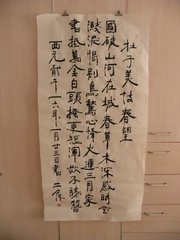 杜子美春望
國破山河在城春草木深感時花
濺淚恨別鳥驚心烽火連三月家
書抵萬金白頭搔更短渾欲不勝簪
西元貳千一六年月廿三日書